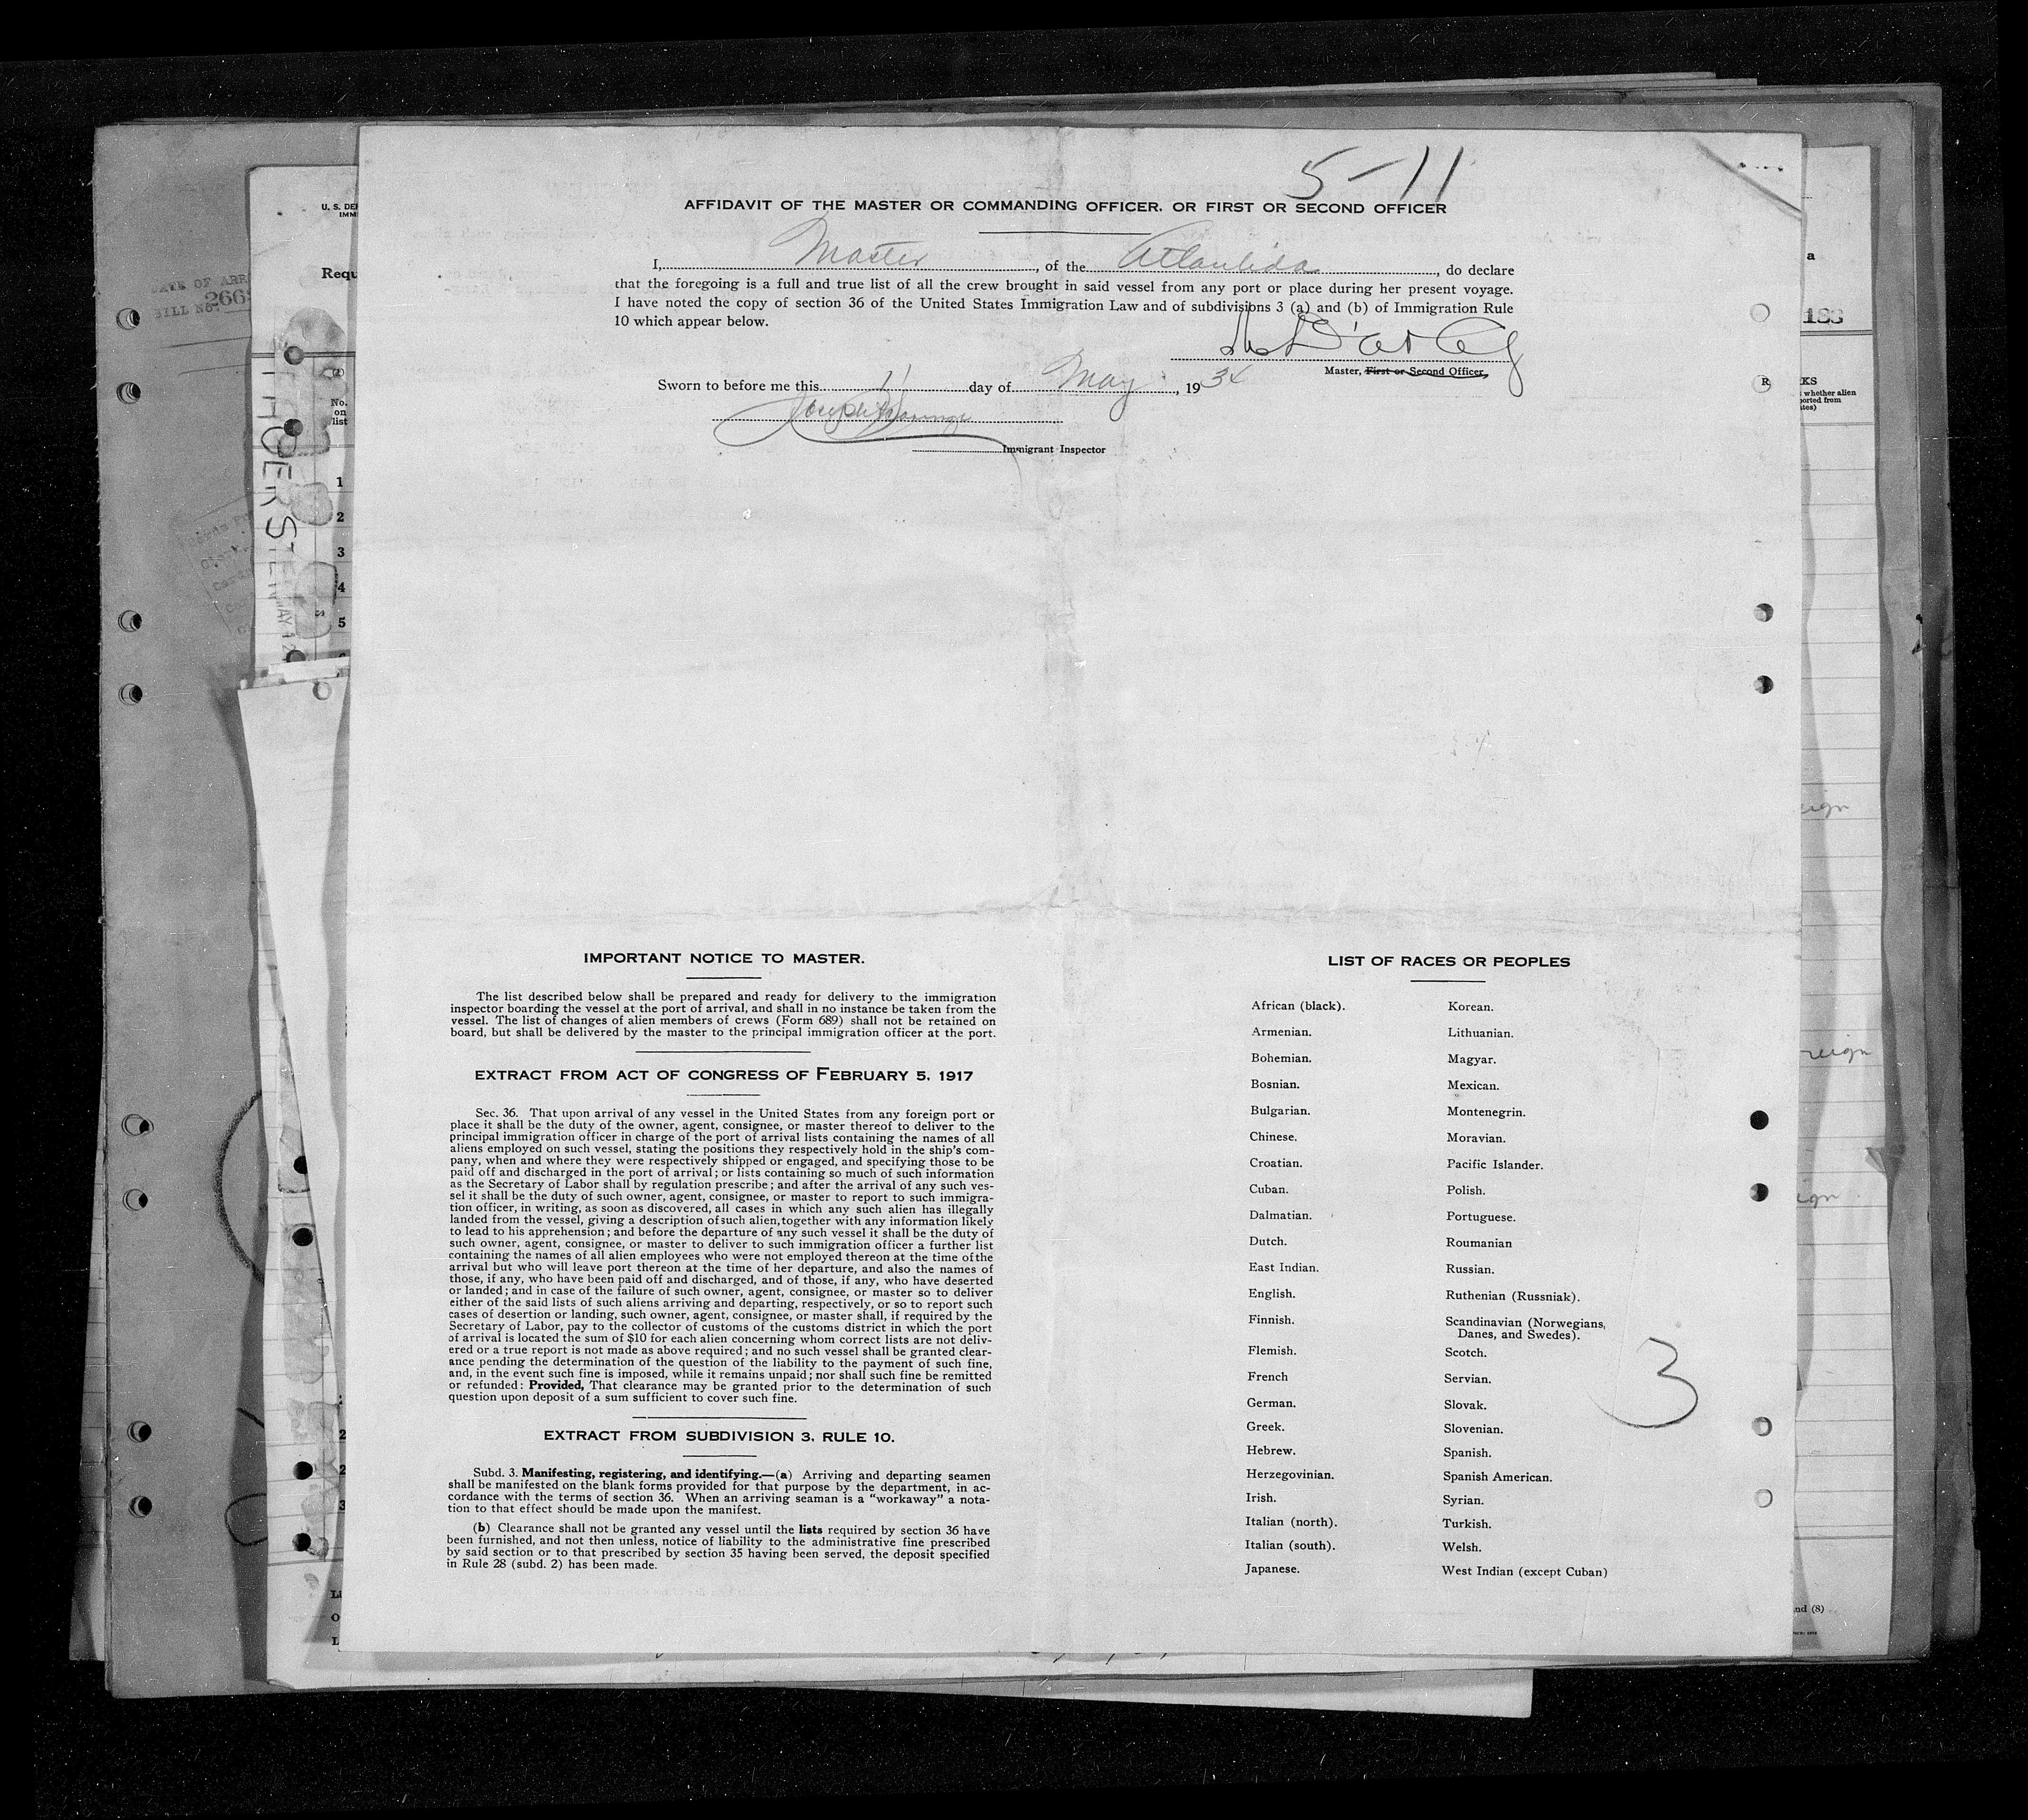 5-11
AFFIDAVIT OF THE MASTER OR COMMANDING OFFICER, OR FIRST OR SECOND OFFICER
I, Master, of the Atlantida, do declare
that the foregoing is a full and true list of all the crew brought in said vessel from any port or place during her present voyage.
I have noted the copy of section 36 of the United States Immigration Law and of subdivisions 3 (a) and (b) of Immigration Rule
10 which appear below.
Master, First or Second Officer.
Sworn to before me this 11 day of May, 1934
Immigrant Inspector
U. S. DEP
IMMI
Requ
DATE OF ARR
BILL No. 266
No.
on
list
1
2
3
4
5
a
188
R
KS
whether alien
ported from
tes)
eign
reign
ign
nd (8)
IMPORTANT NOTICE TO MASTER.
The list described below shall be prepared and ready for delivery to the immigration
inspector boarding the vessel at the port of arrival, and shall in no instance be taken from the
vessel. The list of changes of alien members of crews (Form 689) shall not be retained on
board, but shall be delivered by the master to the principal immigration officer at the port.
EXTRACT FROM ACT OF CONGRESS OF FEBRUARY 5, 1917
Sec. 36. That upon arrival of any vessel in the United States from any foreign port or
place it shall be the duty of the owner, agent, consignee, or master thereof to deliver to the
principal immigration officer in charge of the port of arrival lists containing the names of all
aliens employed on such vessel, stating the positions they respectively hold in the ship's com-
pany, when and where they were respectively shipped or engaged, and specifying those to be
paid off and discharged in the port of arrival; or lists containing so much of such information
as the Secretary of Labor shall by regulation prescribe; and after the arrival of any such ves-
sel it shall be the duty of such owner, agent, consignee, or master to report to such immigra-
tion officer, in writing, as soon as discovered, all cases in which any such alien has illegally
landed from the vessel, giving a description of such alien, together with any information likely
to lead to his apprehension; and before the departure of any such vessel it shall be the duty of
such owner, agent, consignee, or master to deliver to such immigration officer a further list
containing the names of all alien employees who were not employed thereon at the time of the
arrival but who will leave port thereon at the time of her departure, and also the names of
those, if any, who have been paid off and discharged, and of those, if any, who have deserted
or landed; and in case of the failure of such owner, agent, consignee, or master so to deliver
either of the said lists of such aliens arriving and departing, respectively, or so to report such
cases of desertion or landing, such owner, agent, consignee, or master shall, if required by the
Secretary of Labor, pay to the collector of customs of the customs district in which the port
of arrival is located the sum of $10 for each alien concerning whom correct lists are not deliv-
ered or a true report is not made as above required; and no such vessel shall be granted clear-
ance pending the determination of the question of the liability to the payment of such fine,
and, in the event such fine is imposed, while it remains unpaid; nor shall such fine be remitted
or refunded: Provided, That clearance may be granted prior to the determination of such
question upon deposit of a sum sufficient to cover such fine.
EXTRACT FROM SUBDIVISION 3, RULE 10.
Subd. 3. Manifesting, registering, and identifying.—(a) Arriving and departing seamen
shall be manifested on the blank forms provided for that purpose by the department, in ac-
cordance with the terms of section 36. When an arriving seaman is a "workaway" a nota-
tion to that effect should be made upon the manifest.
(b) Clearance shall not be granted any vessel until the lists required by section 36 have
been furnished, and not then unless, notice of liability to the administrative fine prescribed
by said section or to that prescribed by section 35 having been served, the deposit specified
in Rule 28 (subd. 2) has been made.
LIST OF RACES OR PEOPLES
African (black).
Armenian.
Bohemian.
Bosnian.
Bulgarian.
Chinese.
Croatian.
Cuban.
Dalmatian.
Dutch.
East Indian.
English.
Finnish.
Flemish.
French
German.
Greek.
Hebrew.
Herzegovinian.
Irish.
Italian (north).
Italian (south).
Japanese.
Korean.
Lithuanian.
Magyar.
Mexican.
Montenegrin.
Moravian.
Pacific Islander.
Polish.
Portuguese.
Roumanian
Russian.
Ruthenian (Russniak).
Scandinavian (Norwegians,
Danes, and Swedes).
Scotch.
Servian.
Slovak.
Slovenian.
Spanish.
Spanish American.
Syrian.
Turkish.
Welsh.
West Indian (except Cuban)
3